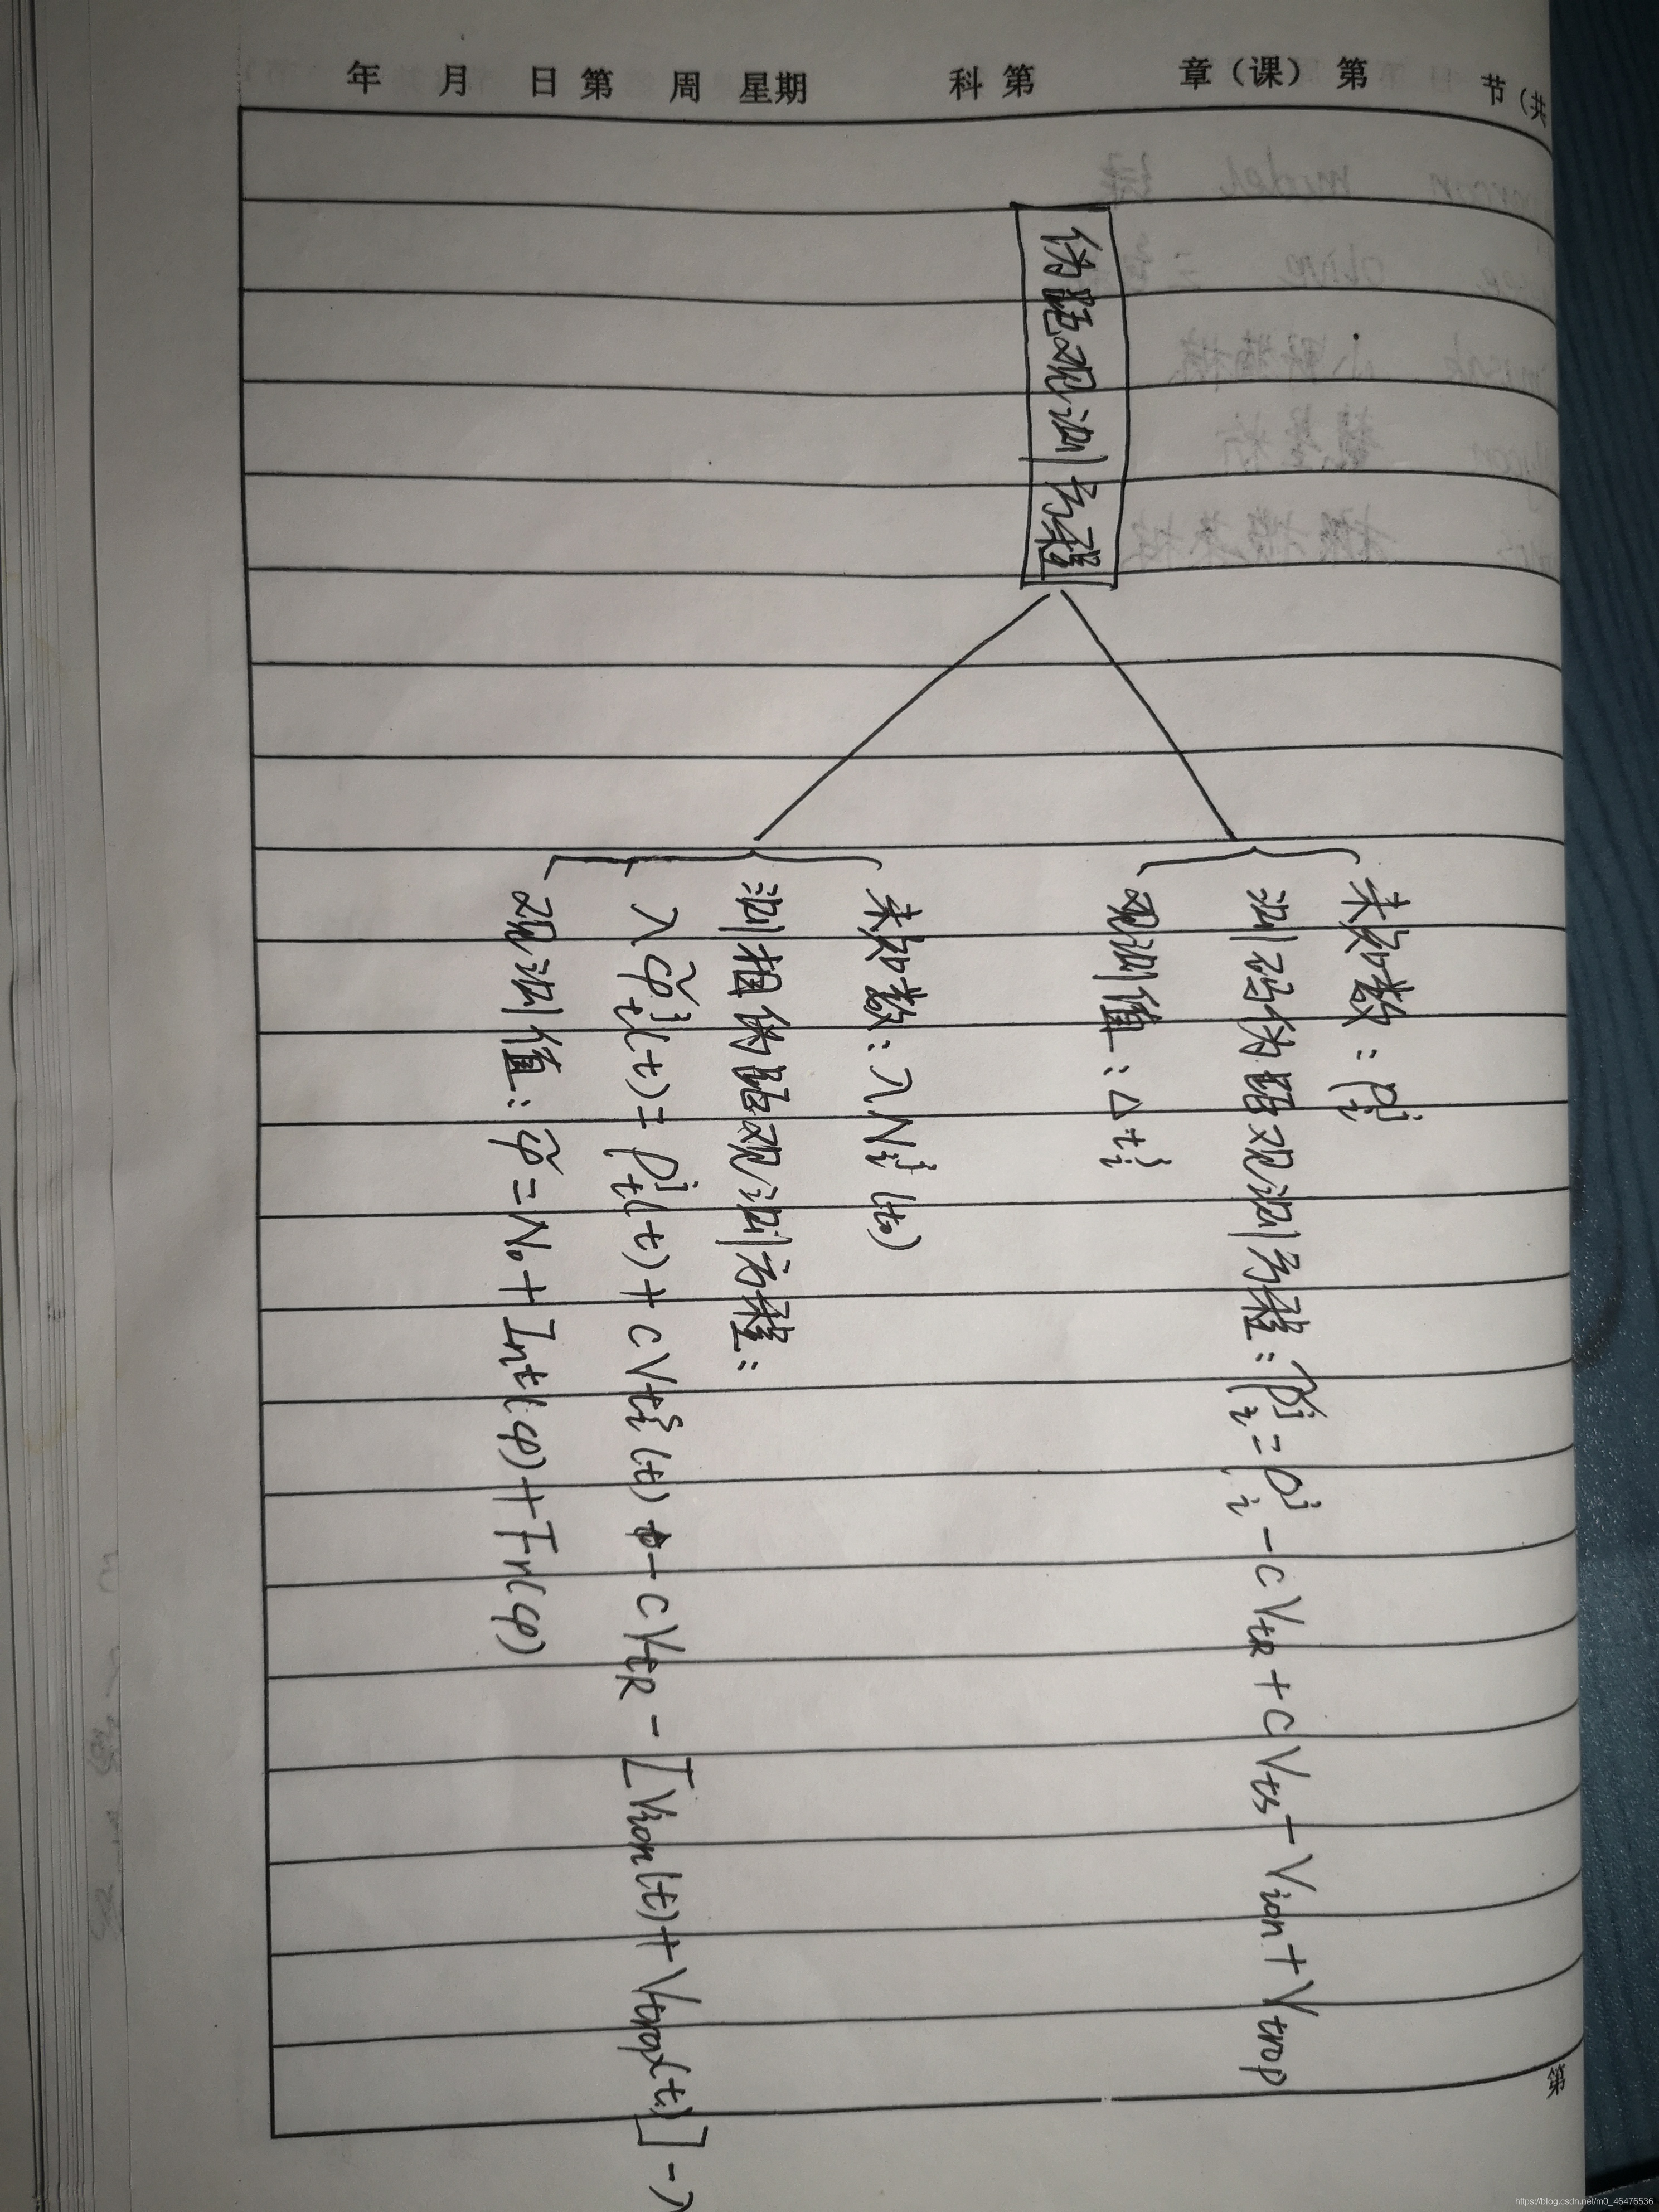 年 月 日 第 周 星期 科 第 章（课） 第 节（共
伪距观测方程
未知数：ρᵢʲ
测码伪距观测方程：ρ̃ᵢʲ = ρᵢʲ - cVtR + cVts - Vion + Vtrop
观测值：Δtᵢʲ
未知数：λNᵢʲ(t₀)
测相伪距观测方程：
λφ̃ₜʲ(t) = ρₜʲ(t) + cVtᵢˢ(t) - cVtR - [Vion(t) + Vtrop(t)] - λ
观测值：φ̃ = N₀ + Int(φ) + Fr(φ)
第
https://blog.csdn.net/m0_46476536